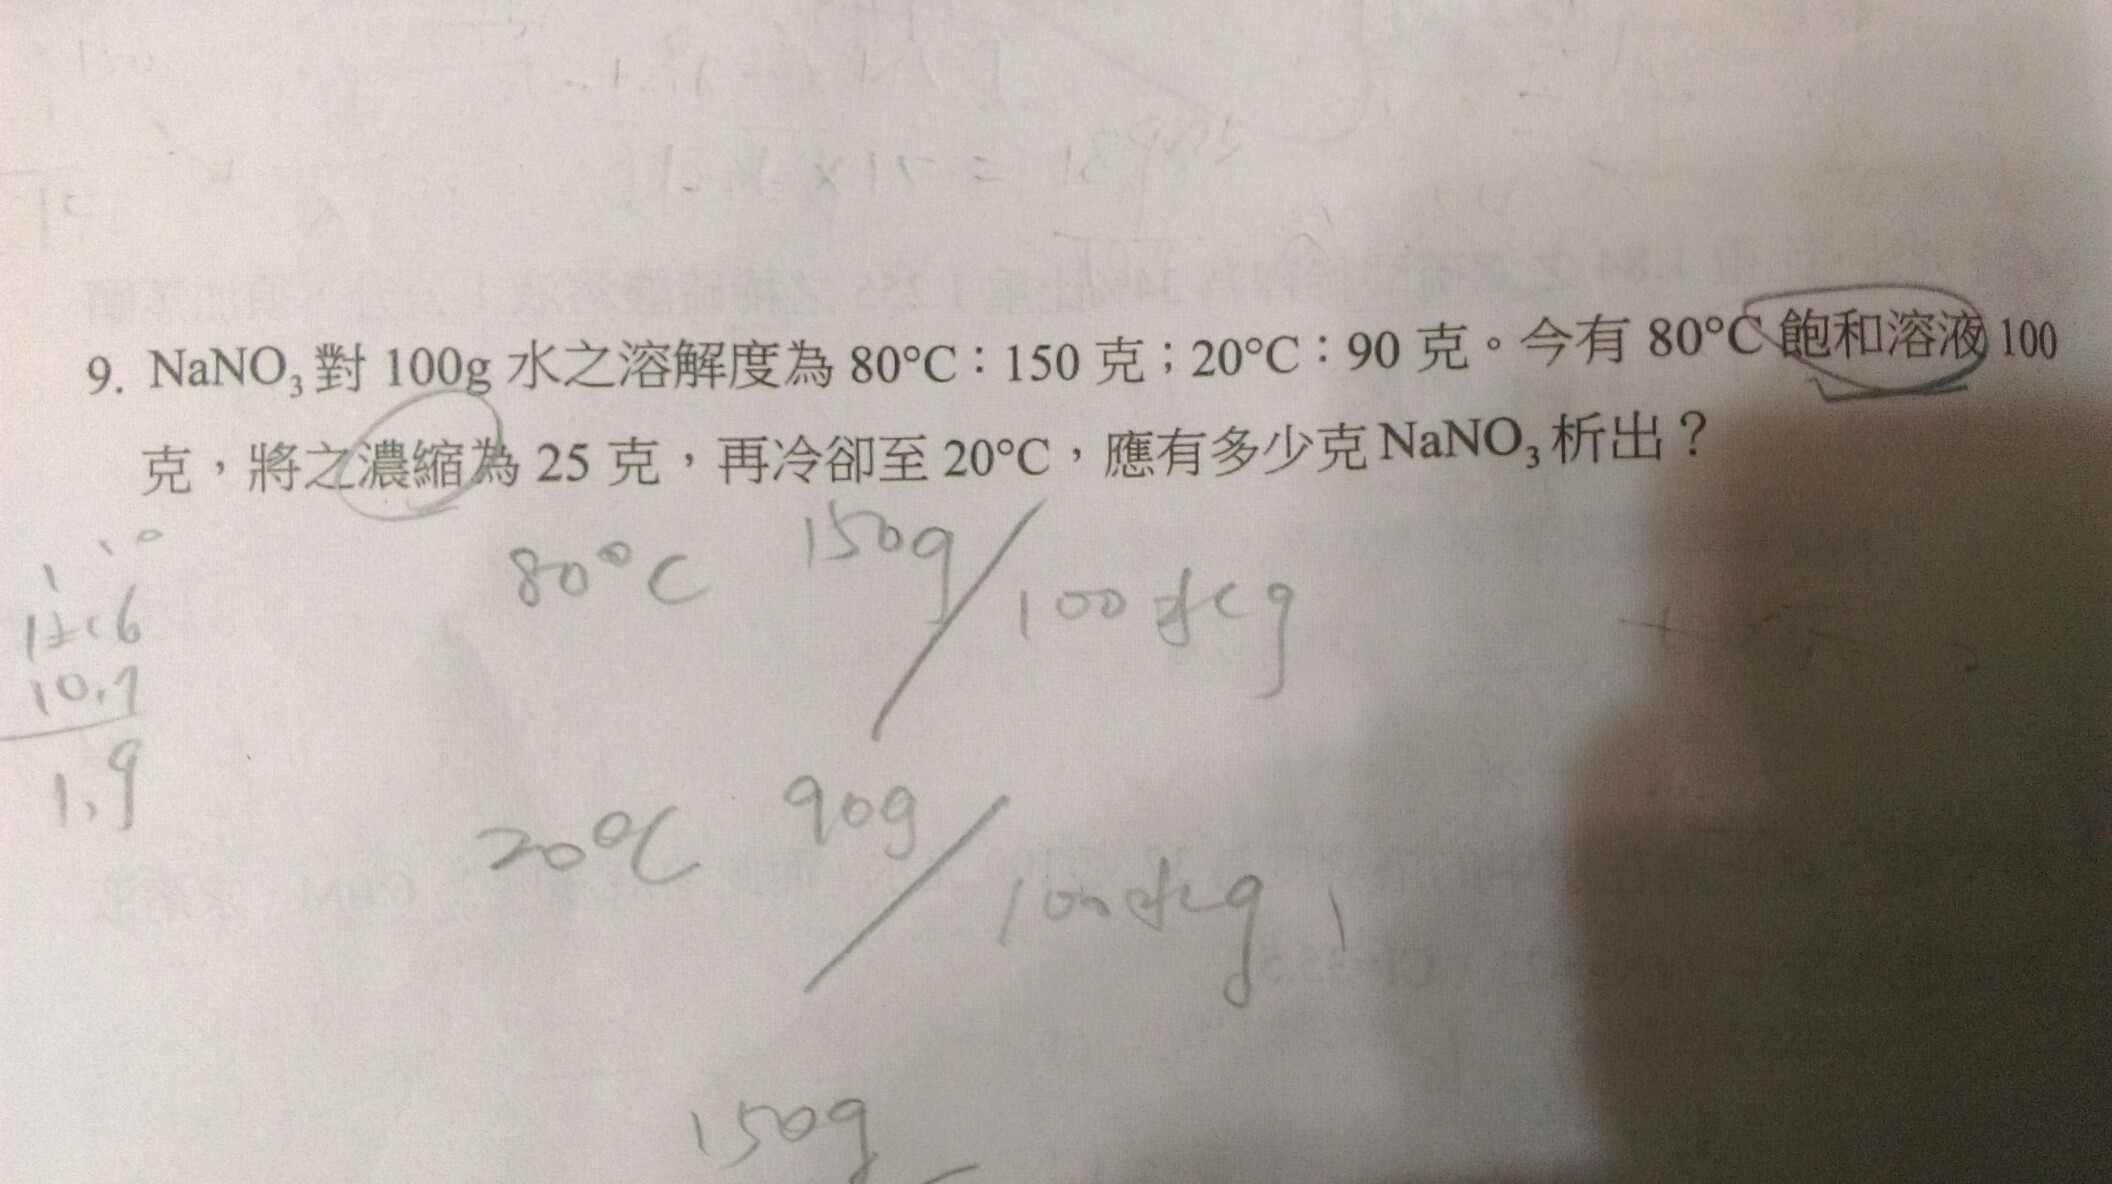 9. NaNO₃對 100g 水之溶解度為 80°C：150 克；20°C：90 克。今有 80°C 飽和溶液 100
克，將之濃縮為 25 克，再冷卻至 20°C，應有多少克 NaNO₃ 析出？
80°C 150g / 100水g
20°C 90g / 100水g
10.7
1.9
150g